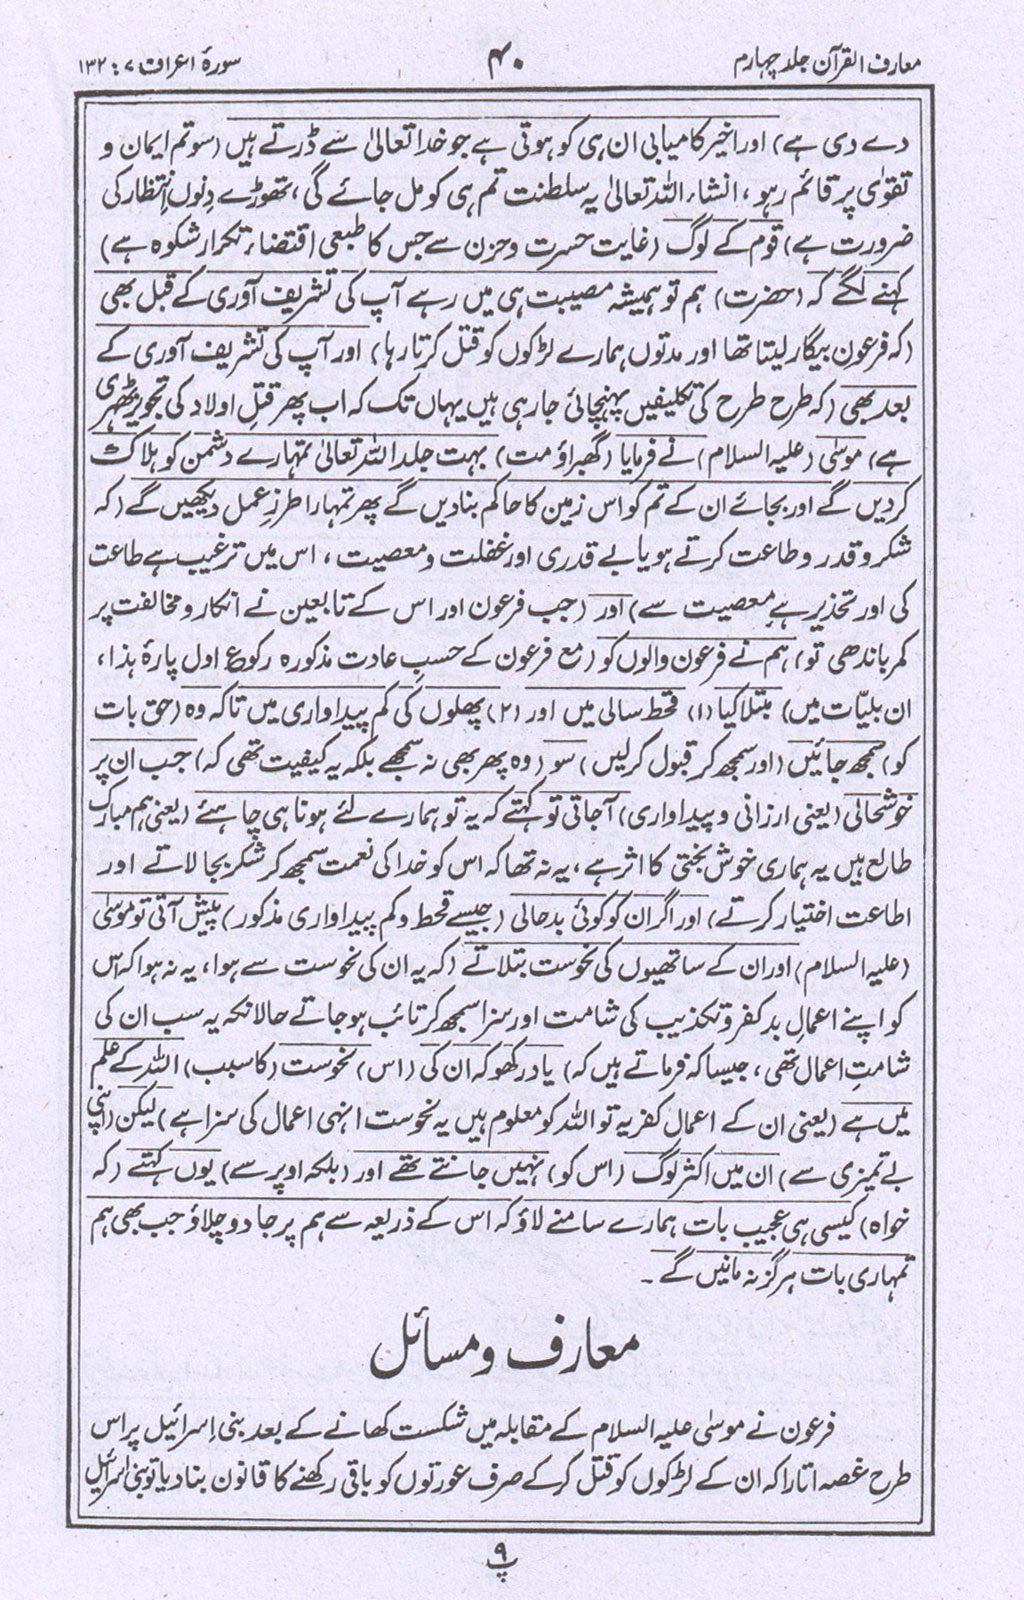 معارف القرآن جلد چہارم
۴۰
سورۂ اعراف ۷ : ۱۳۲
دے دی ہے) اور اخیر کامیابی ان ہی کو ہوتی ہے جو خدا تعالیٰ سے ڈرتے ہیں (سو تم ایمان و
تقویٰ پر قائم رہو، انشاء اللہ تعالیٰ یہ سلطنت تم ہی کو مل جائے گی، تھوڑے دنوں انتظار کی
ضرورت ہے) قوم کے لوگ (غایت حسرت و حزن سے جس کا طبعی اقتضاء تکرار شکوہ ہے)
کہنے لگے کہ (حضرت) ہم تو ہمیشہ مصیبت ہی میں رہے آپ کی تشریف آوری کے قبل بھی
(کہ فرعون بیگار لیتا تھا اور مدتوں ہمارے لڑکوں کو قتل کرتا رہا) اور آپ کی تشریف آوری کے
بعد بھی (کہ طرح طرح کی تکلیفیں پہنچائی جا رہی ہیں یہاں تک کہ اب پھر قتلِ اولاد کی تجویز ٹھہری
ہے) موسٰی (علیہ السلام) نے فرمایا (گھبراؤ مت) بہت جلد اللہ تعالیٰ تمہارے دشمن کو ہلاک
کردیں گے اور بجائے ان کے تم کو اس زمین کا حاکم بنادیں گے پھر تمہارا طرزِ عمل دیکھیں گے (کہ
شکر و قدر و طاعت کرتے ہو یا بے قدری اور غفلت و معصیت، اس میں ترغیب ہے طاعت
کی اور تحذیر ہے معصیت سے) اور (جب فرعون اور اس کے تابعین نے انکار و مخالفت پر
کمر باندھی تو) ہم نے فرعون والوں کو (مع فرعون کے حسبِ عادت مذکورہ رکوع اول پارۂ ہذا،
ان بلیّات میں) مبتلا کیا (۱) قحط سالی میں اور (۲) پھلوں کی کم پیداواری میں تاکہ وہ (حق بات
کو) سمجھ جائیں (اور سمجھ کر قبول کرلیں) سو (وہ پھر بھی نہ سمجھے بلکہ یہ کیفیت تھی کہ) جب ان پر
خوشحالی (یعنی ارزانی و پیداواری) آجاتی تو کہتے کہ یہ تو ہمارے لئے ہونا ہی چاہئے (یعنی ہم مبارک
طالع ہیں یہ ہماری خوش بختی کا اثر ہے، یہ نہ تھا کہ اس کو خدا کی نعمت سمجھ کر شکر بجا لاتے اور
اطاعت اختیار کرتے) اور اگر ان کو کوئی بدحالی (جیسے قحط و کم پیداواری مذکور) پیش آتی تو موسٰی
(علیہ السلام) اور ان کے ساتھیوں کی نحوست بتلاتے (کہ یہ ان کی نحوست سے ہوا، یہ نہ ہوا کہ اس
کو اپنے اعمالِ بد کفر و تکذیب کی شامت اور سزا سمجھ کر تائب ہو جاتے حالانکہ یہ سب ان کی
شامتِ اعمال تھی، جیسا کہ فرماتے ہیں کہ) یاد رکھو کہ ان کی (اس) نحوست (کا سبب) اللہ کے علم
میں ہے (یعنی ان کے اعمال کفریہ تو اللہ کو معلوم ہیں یہ نحوست انہی اعمال کی سزا ہے) لیکن (اپنی
بے تمیزی سے) ان میں اکثر لوگ (اس کو) نہیں جانتے تھے اور (بلکہ اوپر سے) یوں کہتے (کہ
خواہ) کیسی ہی عجیب بات ہمارے سامنے لاؤ کہ اس کے ذریعہ سے ہم پر جادو چلاؤ جب بھی ہم
تمہاری بات ہرگز نہ مانیں گے۔
معارف و مسائل
فرعون نے موسٰی علیہ السلام کے مقابلہ میں شکست کھانے کے بعد بنی اسرائیل پر اس
طرح غصہ اتارا کہ ان کے لڑکوں کو قتل کرکے صرف عورتوں کو باقی رکھنے کا قانون بنا دیا تو بنی اسرائیل
پ ۹